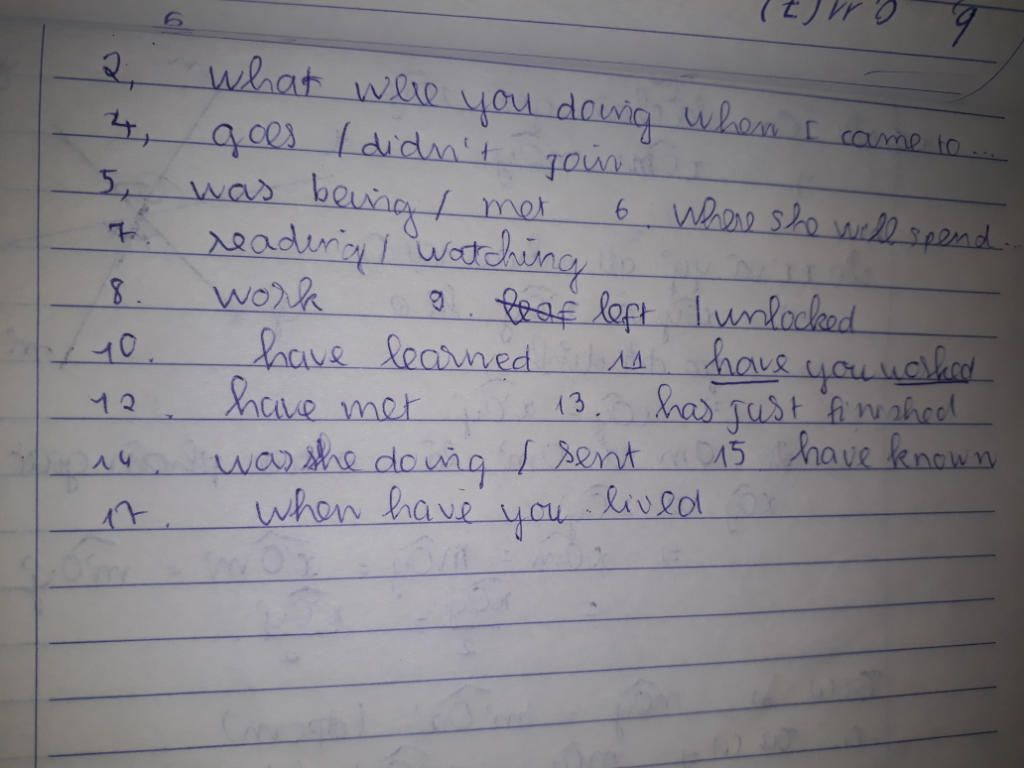 6
(t) 9
2, what were you doing when I came to...
4, goes / didn't join
5, was being / met 6. where she will spend...
7. reading / watching
8. work 9. left / unlocked
10. have learned 11 have you worked
12. have met 13. has just finished
14. was she doing / sent 15 have known
17. when have you lived